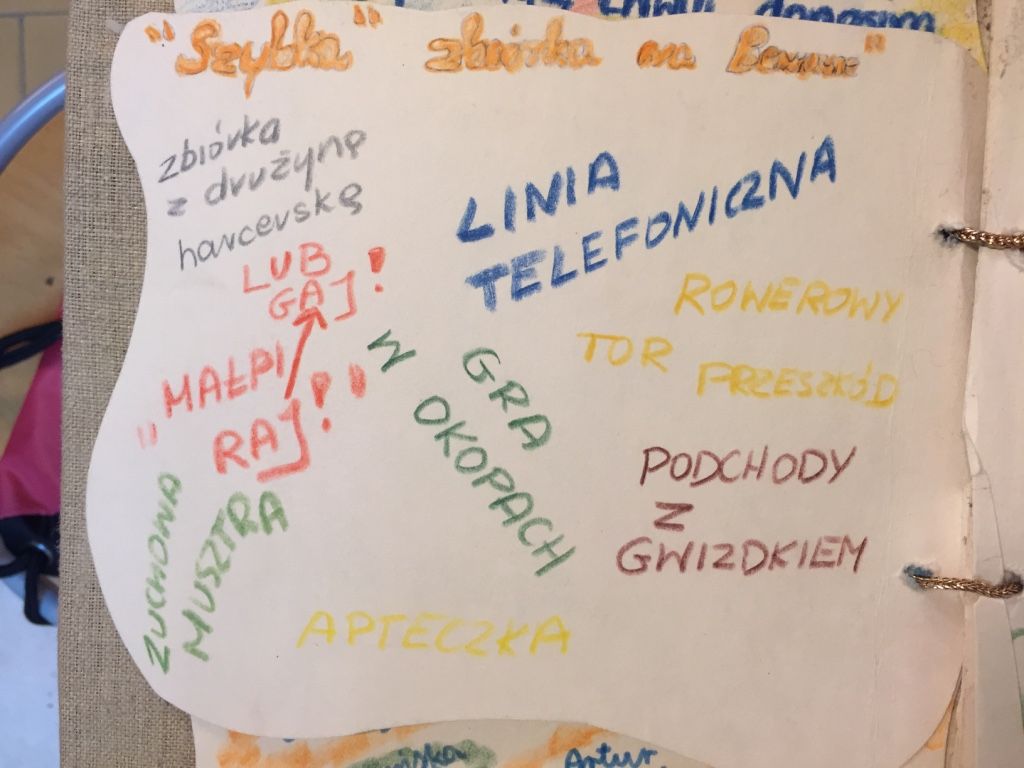 "Szybka" zbiórka na
zbiórka
z drużyną
harcerską
LUB
GAJ!
"MAŁPI
RAJ!"
LINIA
TELEFONICZNA
ROWEROWY
TOR
PRZESZKÓD
GRA
W OKOPACH
PODCHODY
Z
GWIZDKIEM
ZUCHOWA
MUSZTRA
APTECZKA
Artur